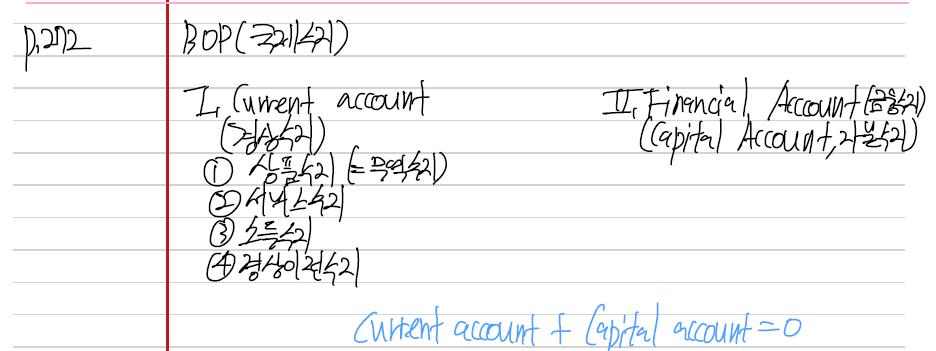 p.272
BOP(국제수지)
I. Current account
(경상수지)
① 상품수지(=무역수지)
② 서비스수지
③ 소득수지
④ 경상이전수지
II. Financial Account(금융수지)
(Capital Account, 자본수지)
Current account + Capital account = 0